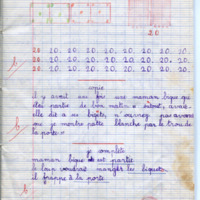 20
20 20 20. 20. 20. 20. 20. 20. 20.
20 20. 20. 20. 20. 20. 20. 20. 20.
20 20. 20. 20. 20. 20. 20. 20. 20.
copie
il y avait une fois une maman bique qui
était partie de bon matin « avait
elle dit à ses biquets, n'ouvrez pas avant
qu'on je montre patte blanche par le trou de
la porte »
je complète
maman bique est partie
le loup voudrait manger les biquets
il frappe à la porte.